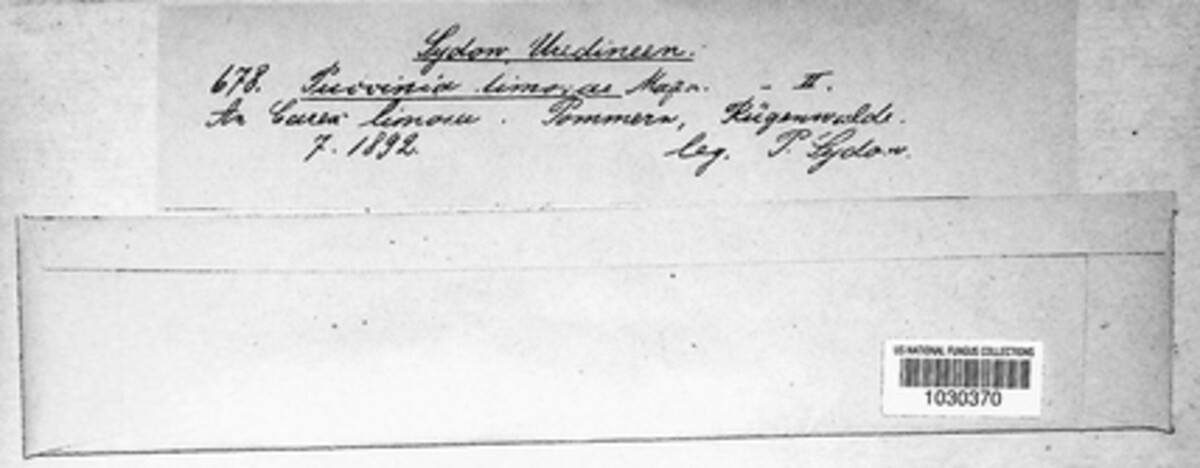 Sydow, Uredineen.
678. Puccinia limosae Magn. - II.
An Carex limosa. Pommern, Rügenwalde.
7. 1892. leg. P. Sydow.
US NATIONAL FUNGUS COLLECTIONS
1030370